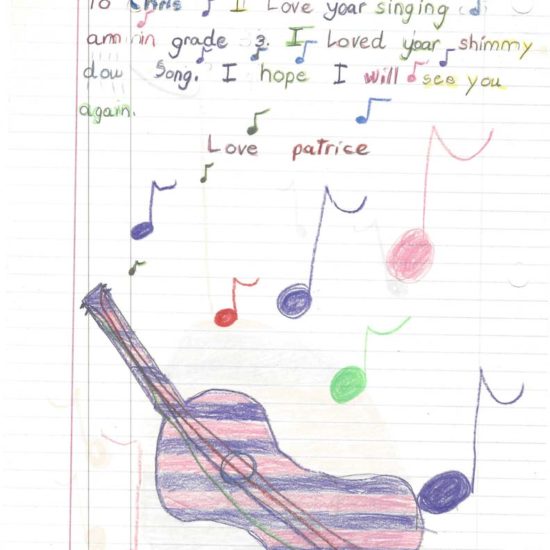 To Chris I Love your singing
am in grade 3. I Loved your shimmy
dow Song. I hope I will see you
again.
Love patrice